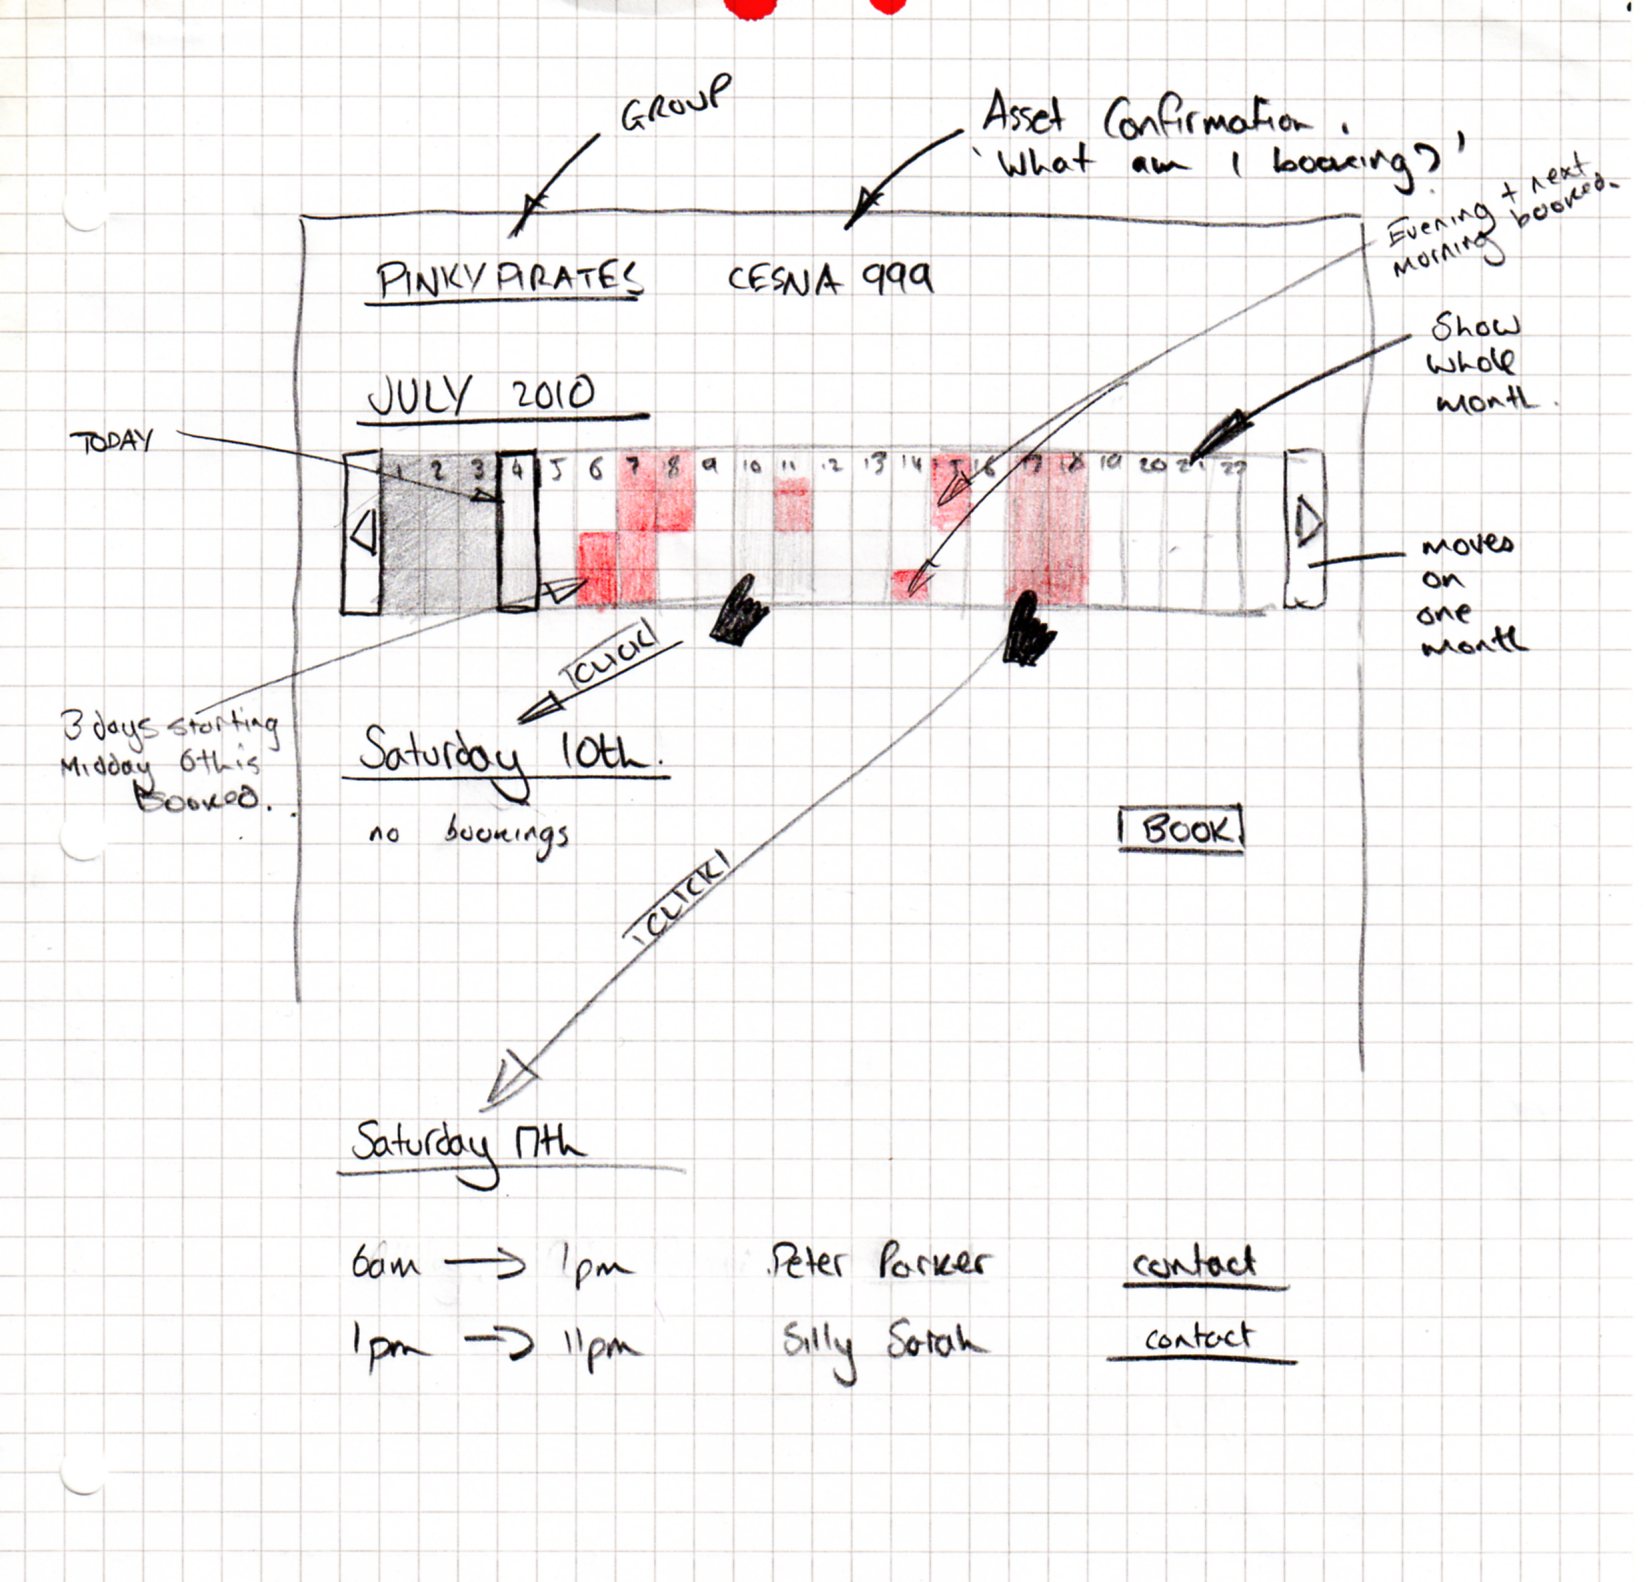 GROUP
Asset Confirmation.
'What am I booking?'
Evening + next
morning booked.
PINKY PIRATES CESNA 999
Show
whole
month.
JULY 2010
TODAY
1 2 3 4 5 6 7 8 9 10 11 12 13 14 15 16 17 18 19 20 21 22
moves
on
one
month
CLICK
3 days starting
Midday 6th is
Booked.
Saturday 10th.
no bookings
BOOK
CLICK
Saturday 17th
6am → 1pm Peter Parker contact
1pm → 11pm Silly Sarah contact